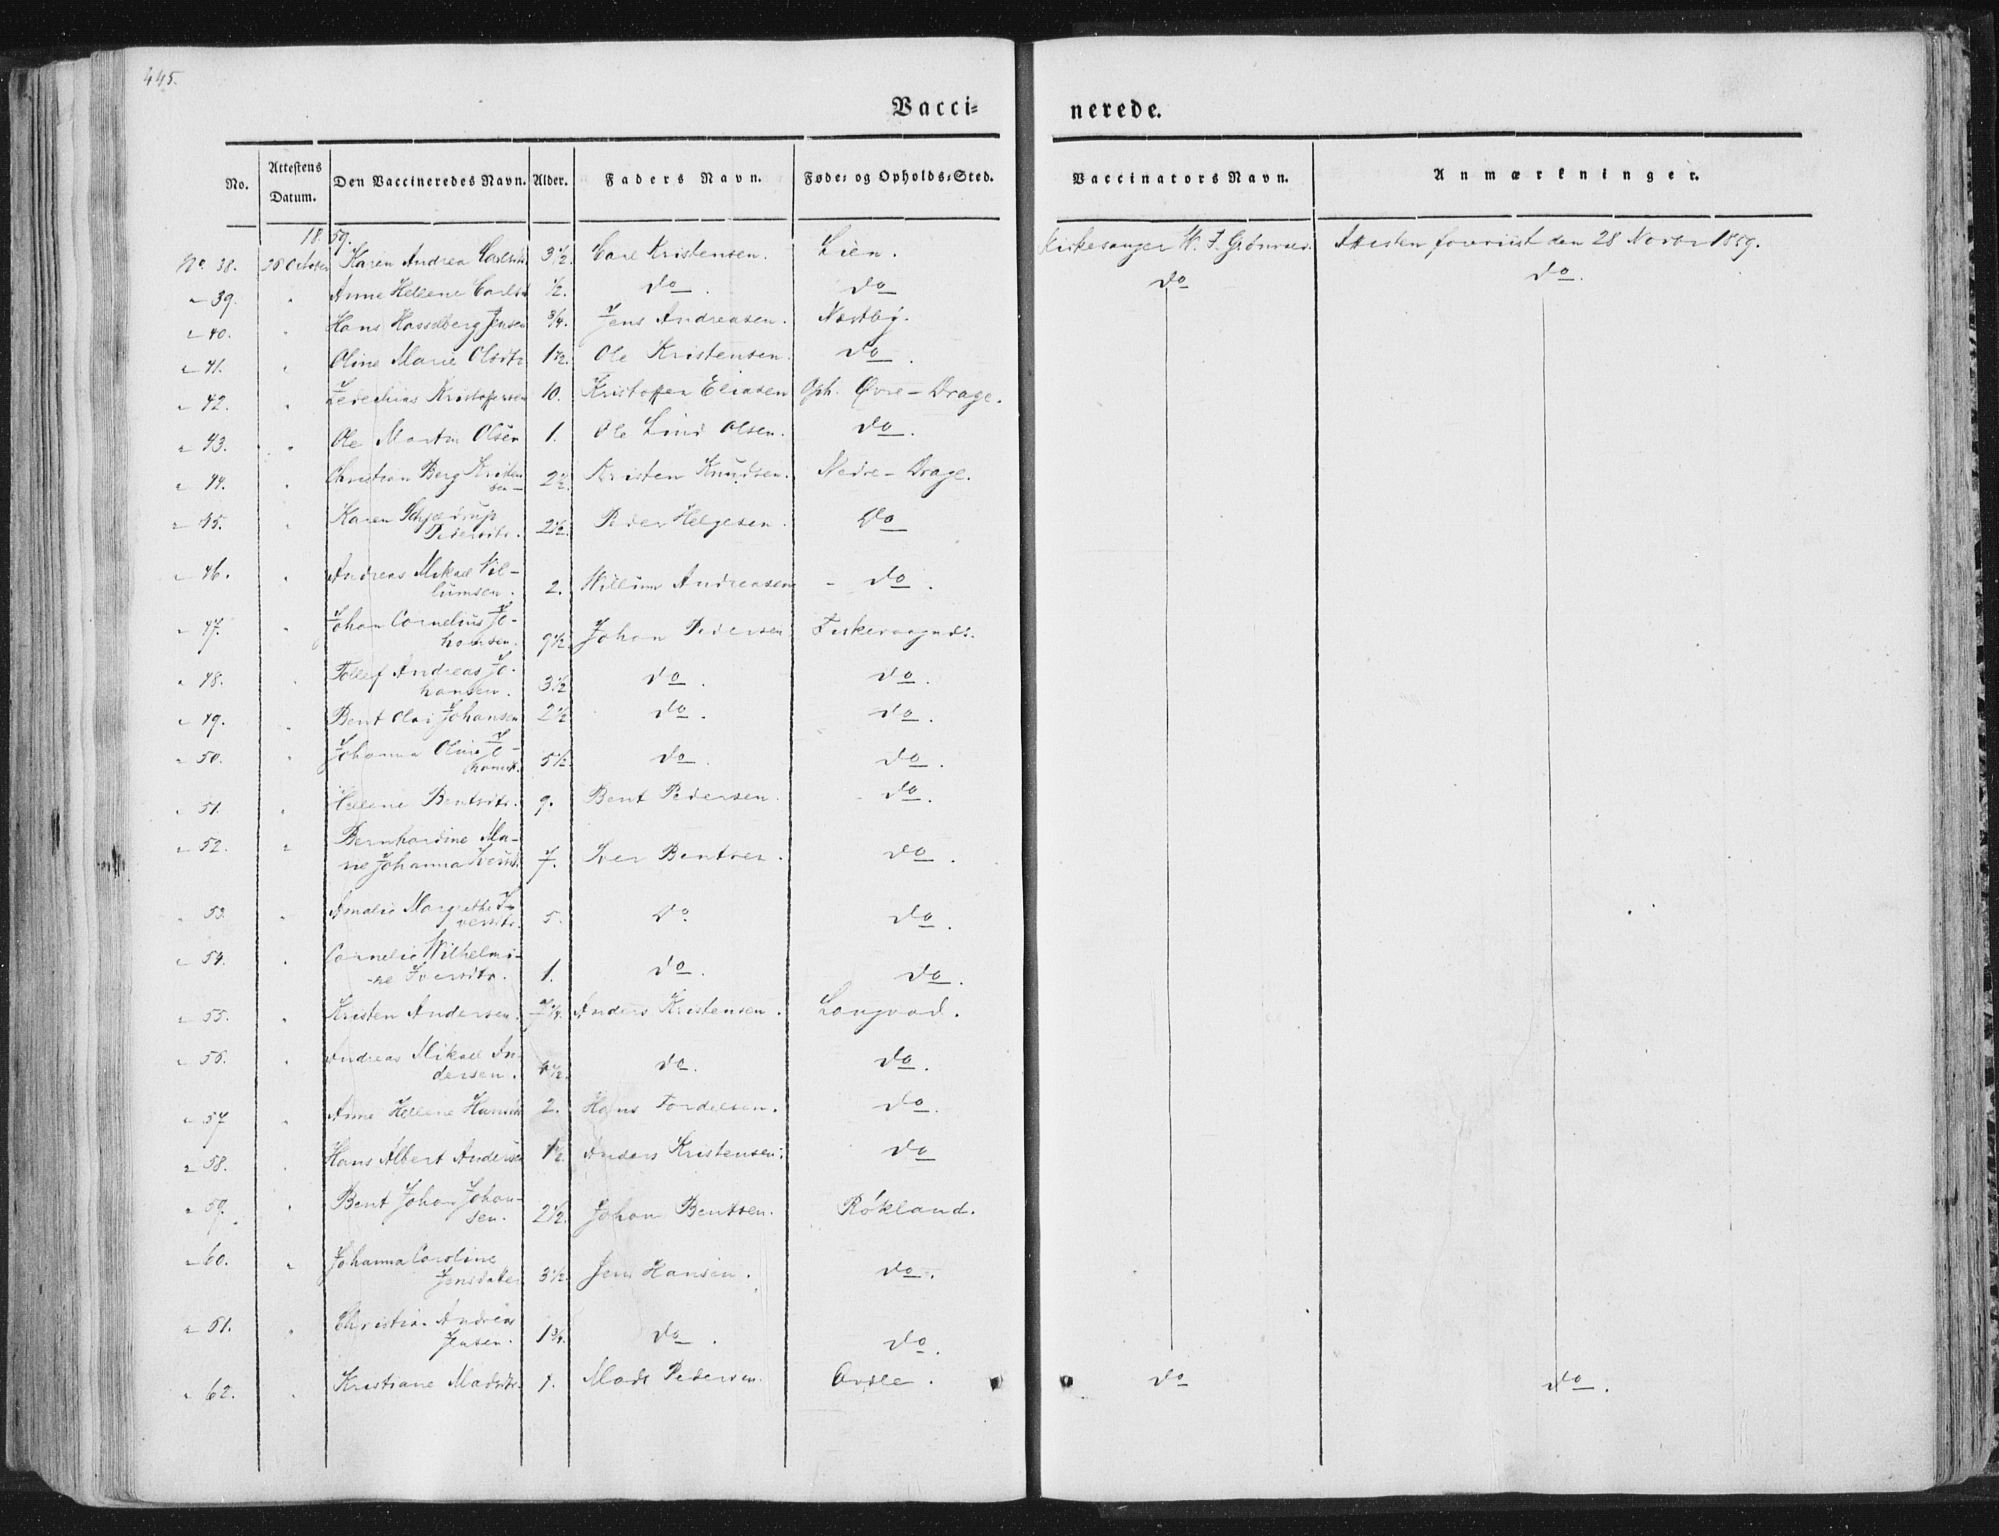 445.
Vacci=
nerede.
No. Attestens Datum. Den Vaccineredes Navn. Alder. Faders Navn. Føde= og Opholds=Sted. Vaccinators Navn. Anmærkninger.
1859.
No. 38. 28 October Karen Andrea Carlsdtr 3 1/2. Carl Kristensen. Lien. Kirkesanger W. F. Grönvies. Attesten foreviist den 28 Novbr 1859.
" 39. " Anne Hellene Carlsd 1/2. do. do do do.
" 40. " Hans Hasselberg Jensen 3/4. Jens Andreasen. Næstby.
" 41. " Oline Marie Olsdtr 1 1/2. Ole Kristensen. do.
" 42. " Kristoffersen 10. Kristoffer Eliasen Oph. Øvre-Drage.
" 43. " Ole Martin Olsen 1. Ole Lind Olsen. do.
" 44. " Christian Berg Kristen
sen- 2 1/2. Kristen Knudsen. Nedre-Drage.
" 45. " Karen Schjeldrup
Pedersdtr. 2 1/2. Peder Helgesen. do
" 46. " Andreas Mikael Vil-
lumsen. 2. Willum Andreasen - do.
" 47. " Johan Cornelius Jo-
hansen. 9 1/2. Johan Pedersen
" 48. " Tollef Andreas Jo-
hansen. 3 1/2 do. do.
" 49. " Bent Olai Johansen 2 1/2 do. do.
" 50. " Johanna Oline Jo-
hansd. 5 1/2 do. do.
" 51. " Hellene Bentsdtr. 9. Bent Pedersen. do.
" 52. " Bernhardine Ma-
rie Johanna Iversd 7. Iver Bentsen. do.
" 53. " Amalie Margrethe I-
versdtr. 5. do do.
" 54. " Cornelie Wilhelmi-
-ne Iversdtr. 1. do. do.
" 55. " Kristen Andersen. Anders Kristensen. Langvad.
" 56. " Andreas Mikael An-
dersen. 4 1/2. do. do.
" 57 " Anne Hellene Hansd 2. Hans Tordelsen. do.
" 58. " Hans Albert Andersen 1 1/2. Anders Kristensen. do
" 59. " Bent Johan Johan-
sen. 2 1/2. Johan Bentsen. Rökland.
" 60. " Johanna Caroline
Jensdatter 3 1/2. Jens Hansen. do.
" 61. " Christian Andreas
Jensen. 1 3/4. do. do.
" 62. " Kristiane Madsdtr. 1. Mads Pedersen. do do.